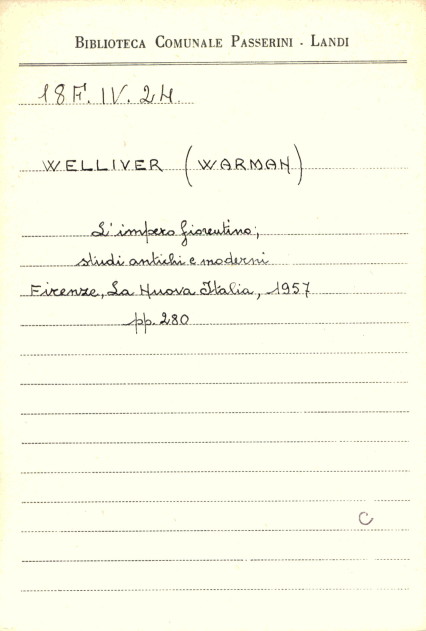 BIBLIOTECA COMUNALE PASSERINI - LANDI
18 F. IV. 24.
WELLIVER (WARMAN)
L'impero fiorentino;
studi antichi e moderni
Firenze, La Nuova Italia, 1957
pp. 280
C